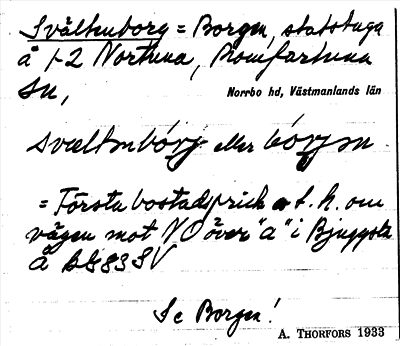 Svältenborg = Borgen, statstuga
å 1-2 Nortuna, Romfartuna
sn,
Norrbo hd, Västmanlands län
svæltnbórj eller bórjen
= Första bostadsprick t. h. om
vägen mot NO över "a" i Bjuggsta
å bl 83 SV
Se Borgen!
A. THORFORS 1933